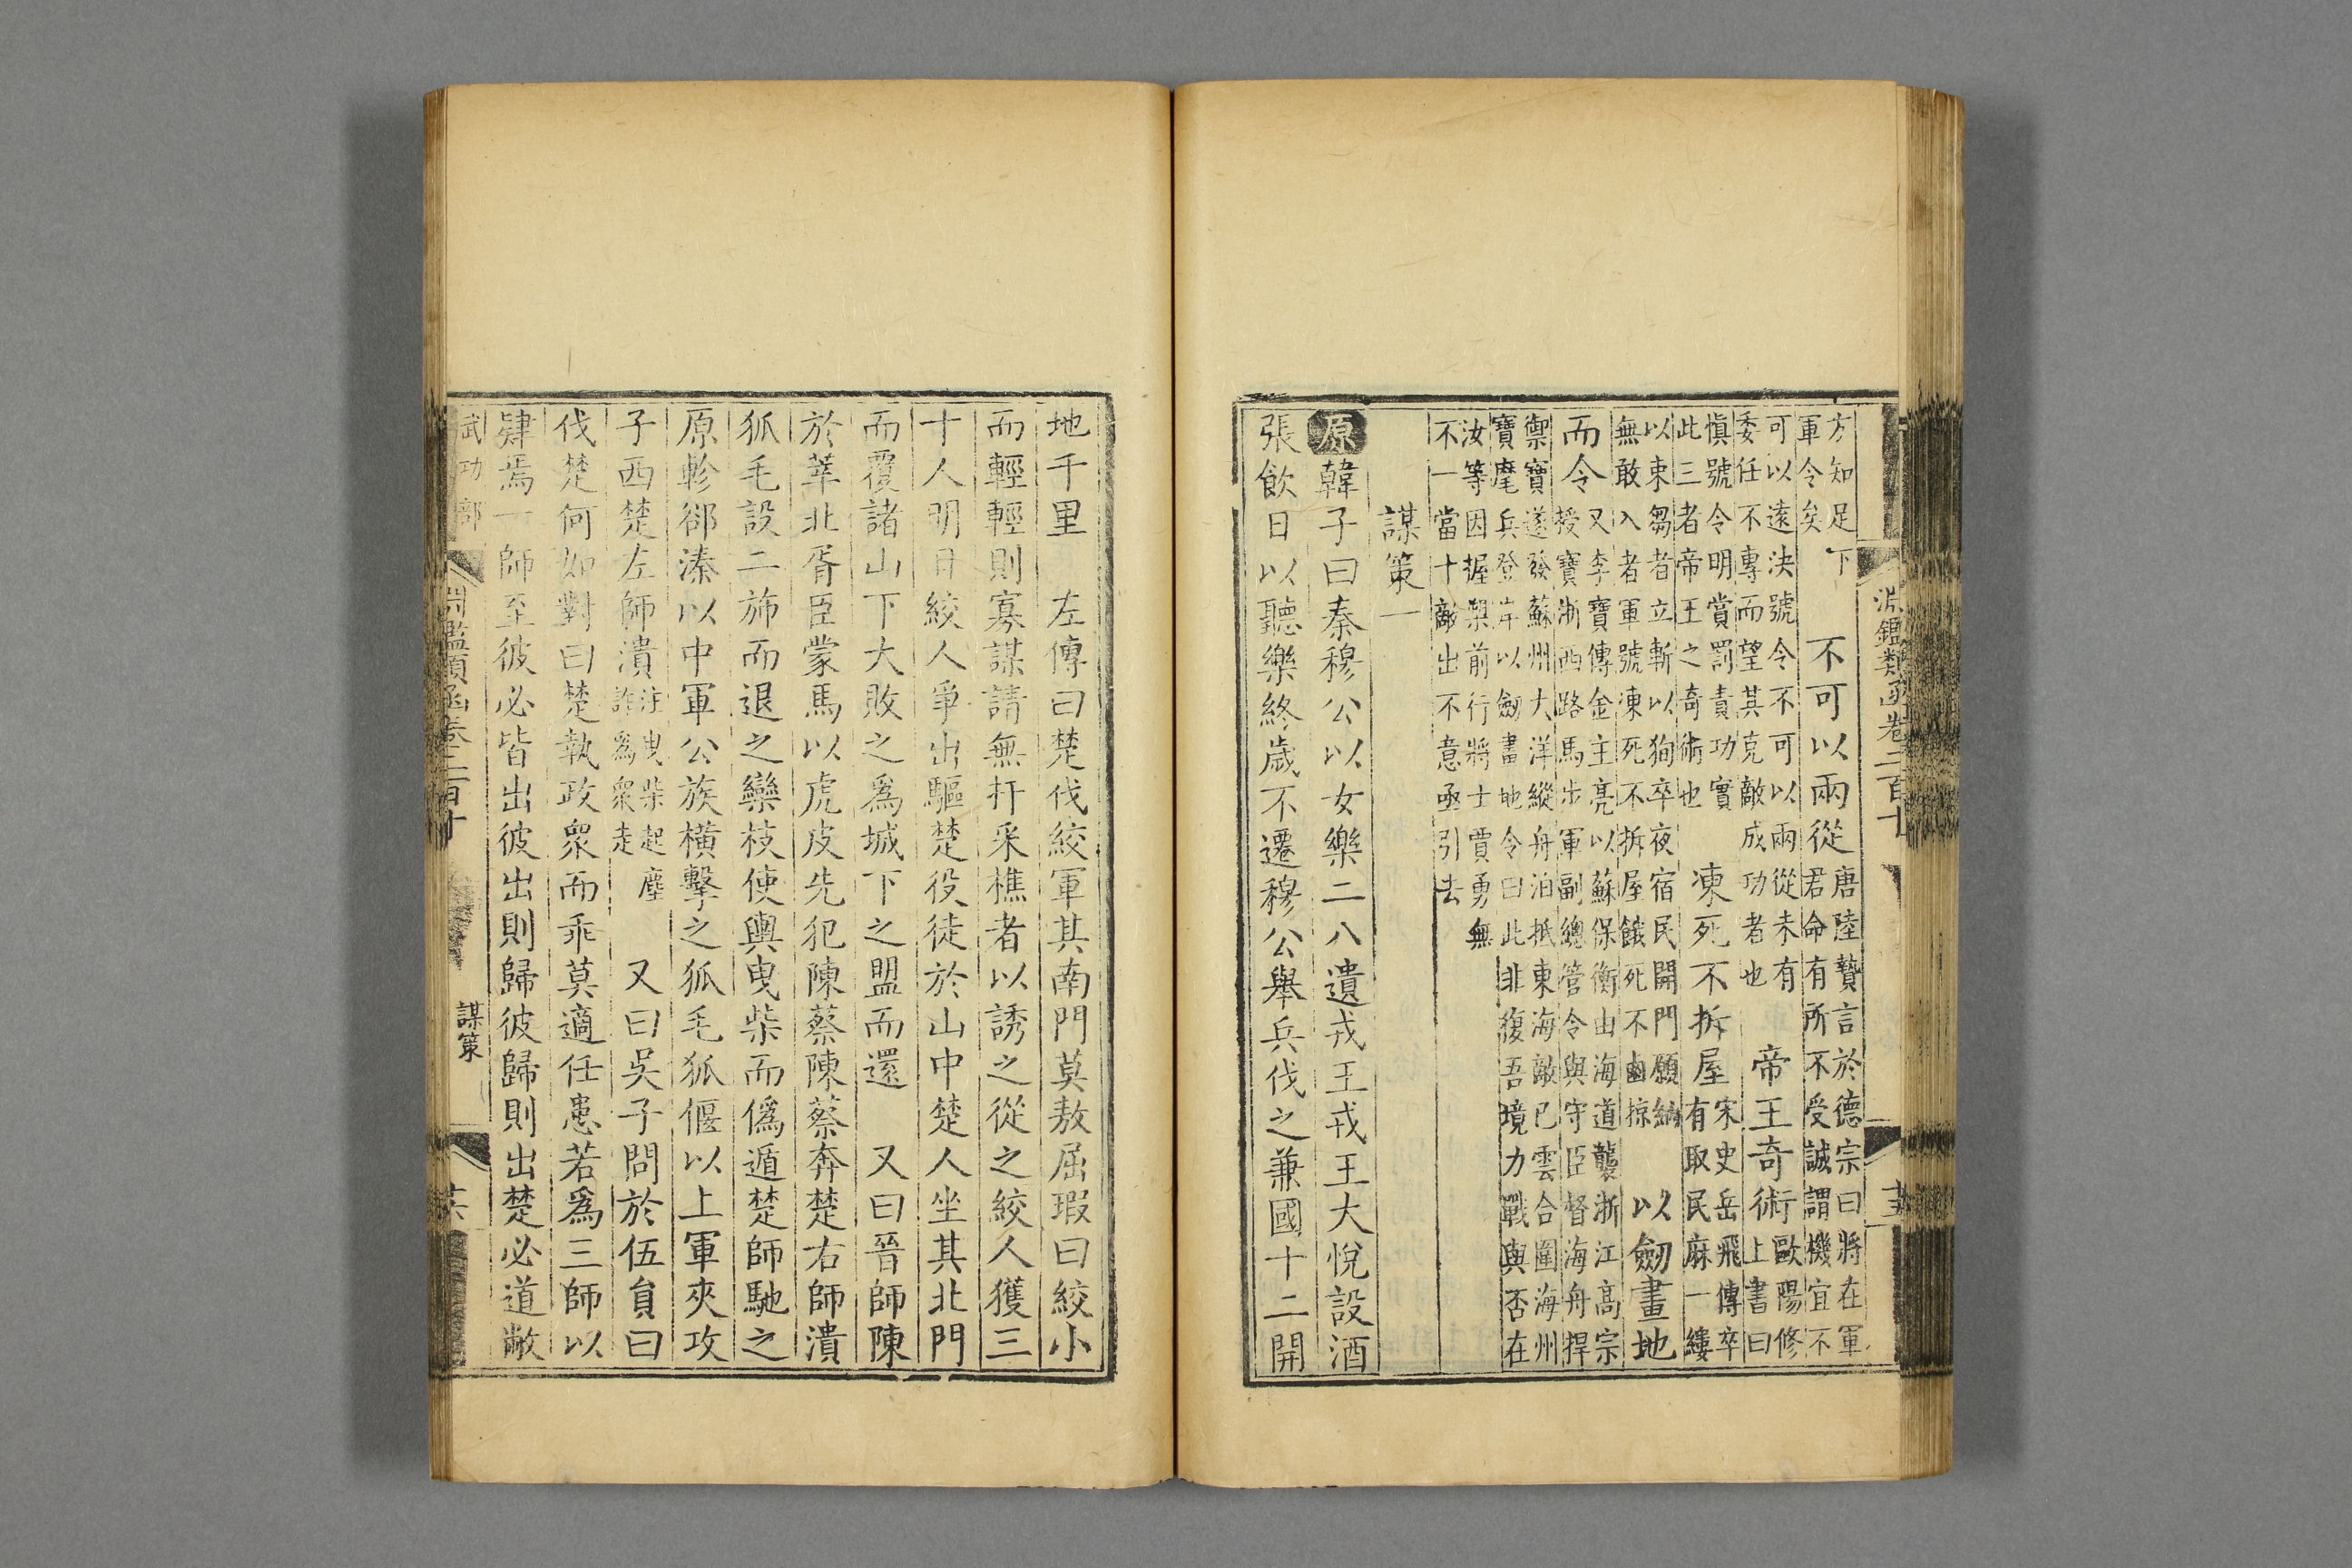 淵鑑類函卷二百十
方知足下
軍令矣
不可以兩從
唐陸贄言於德宗曰將在軍
君命有所不受誠謂機宜不
可以遠決號令不可以兩從未有
委任不專而望其克敵成功者也
帝王奇術
歐陽修
上書曰
慎號令明賞罰責功實
此三者帝王之奇術也
凍死不拆屋
宋史岳飛傳卒
有取民麻一縷
以束芻者立斬以狥卒夜宿民開門願納
無敢入者軍號凍死不拆屋餓死不鹵掠
以劒畫地
而令
又李寶傳金主亮以蘇保衡由海道襲浙江高宗
授寶浙西路馬步軍副總管令與守臣督海舟捍
禦寶遂發蘇州大洋縱舟泊抵東海敵已雲合圍海州
寶麾兵登岸以劒畫地令曰此非復吾境力戰與否在
汝等因握槊前行將士賈勇無
不一當十敵出不意亟引去
謀策一
原韓子曰秦穆公以女樂二八遺戎王戎王大悅設酒
張飲日以聽樂終歲不遷穆公舉兵伐之兼國十二開
地千里　左傳曰楚伐絞軍其南門莫敖屈瑕曰絞小
而輕輕則寡謀請無扞采樵者以誘之從之絞人獲三
十人明日絞人爭出驅楚役徒於山中楚人坐其北門
而覆諸山下大敗之爲城下之盟而還　又曰晉師陳
於莘北胥臣蒙馬以虎皮先犯陳蔡陳蔡奔楚右師潰
狐毛設二斾而退之欒枝使輿曳柴而僞遁楚師馳之
原軫郤溱以中軍公族橫擊之狐毛狐偃以上軍夾攻
子西楚左師潰
注曳柴起塵
詐爲衆走
又曰吳子問於伍員曰
伐楚何如對曰楚執政衆而乖莫適任患若爲三師以
肄焉一師至彼必皆出彼出則歸彼歸則出楚必道敝
武功部
淵鑑類函卷二百十
謀策